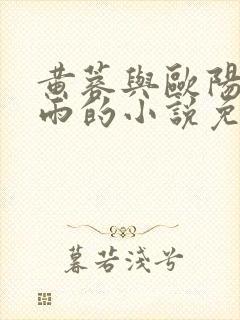 黄蓉與歐陽
雨的小說免
暮若淺兮